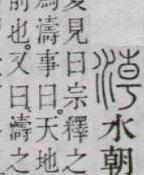 水朝
夏見曰宗釋之
爲濤事曰。天地
前也。又曰。濤之